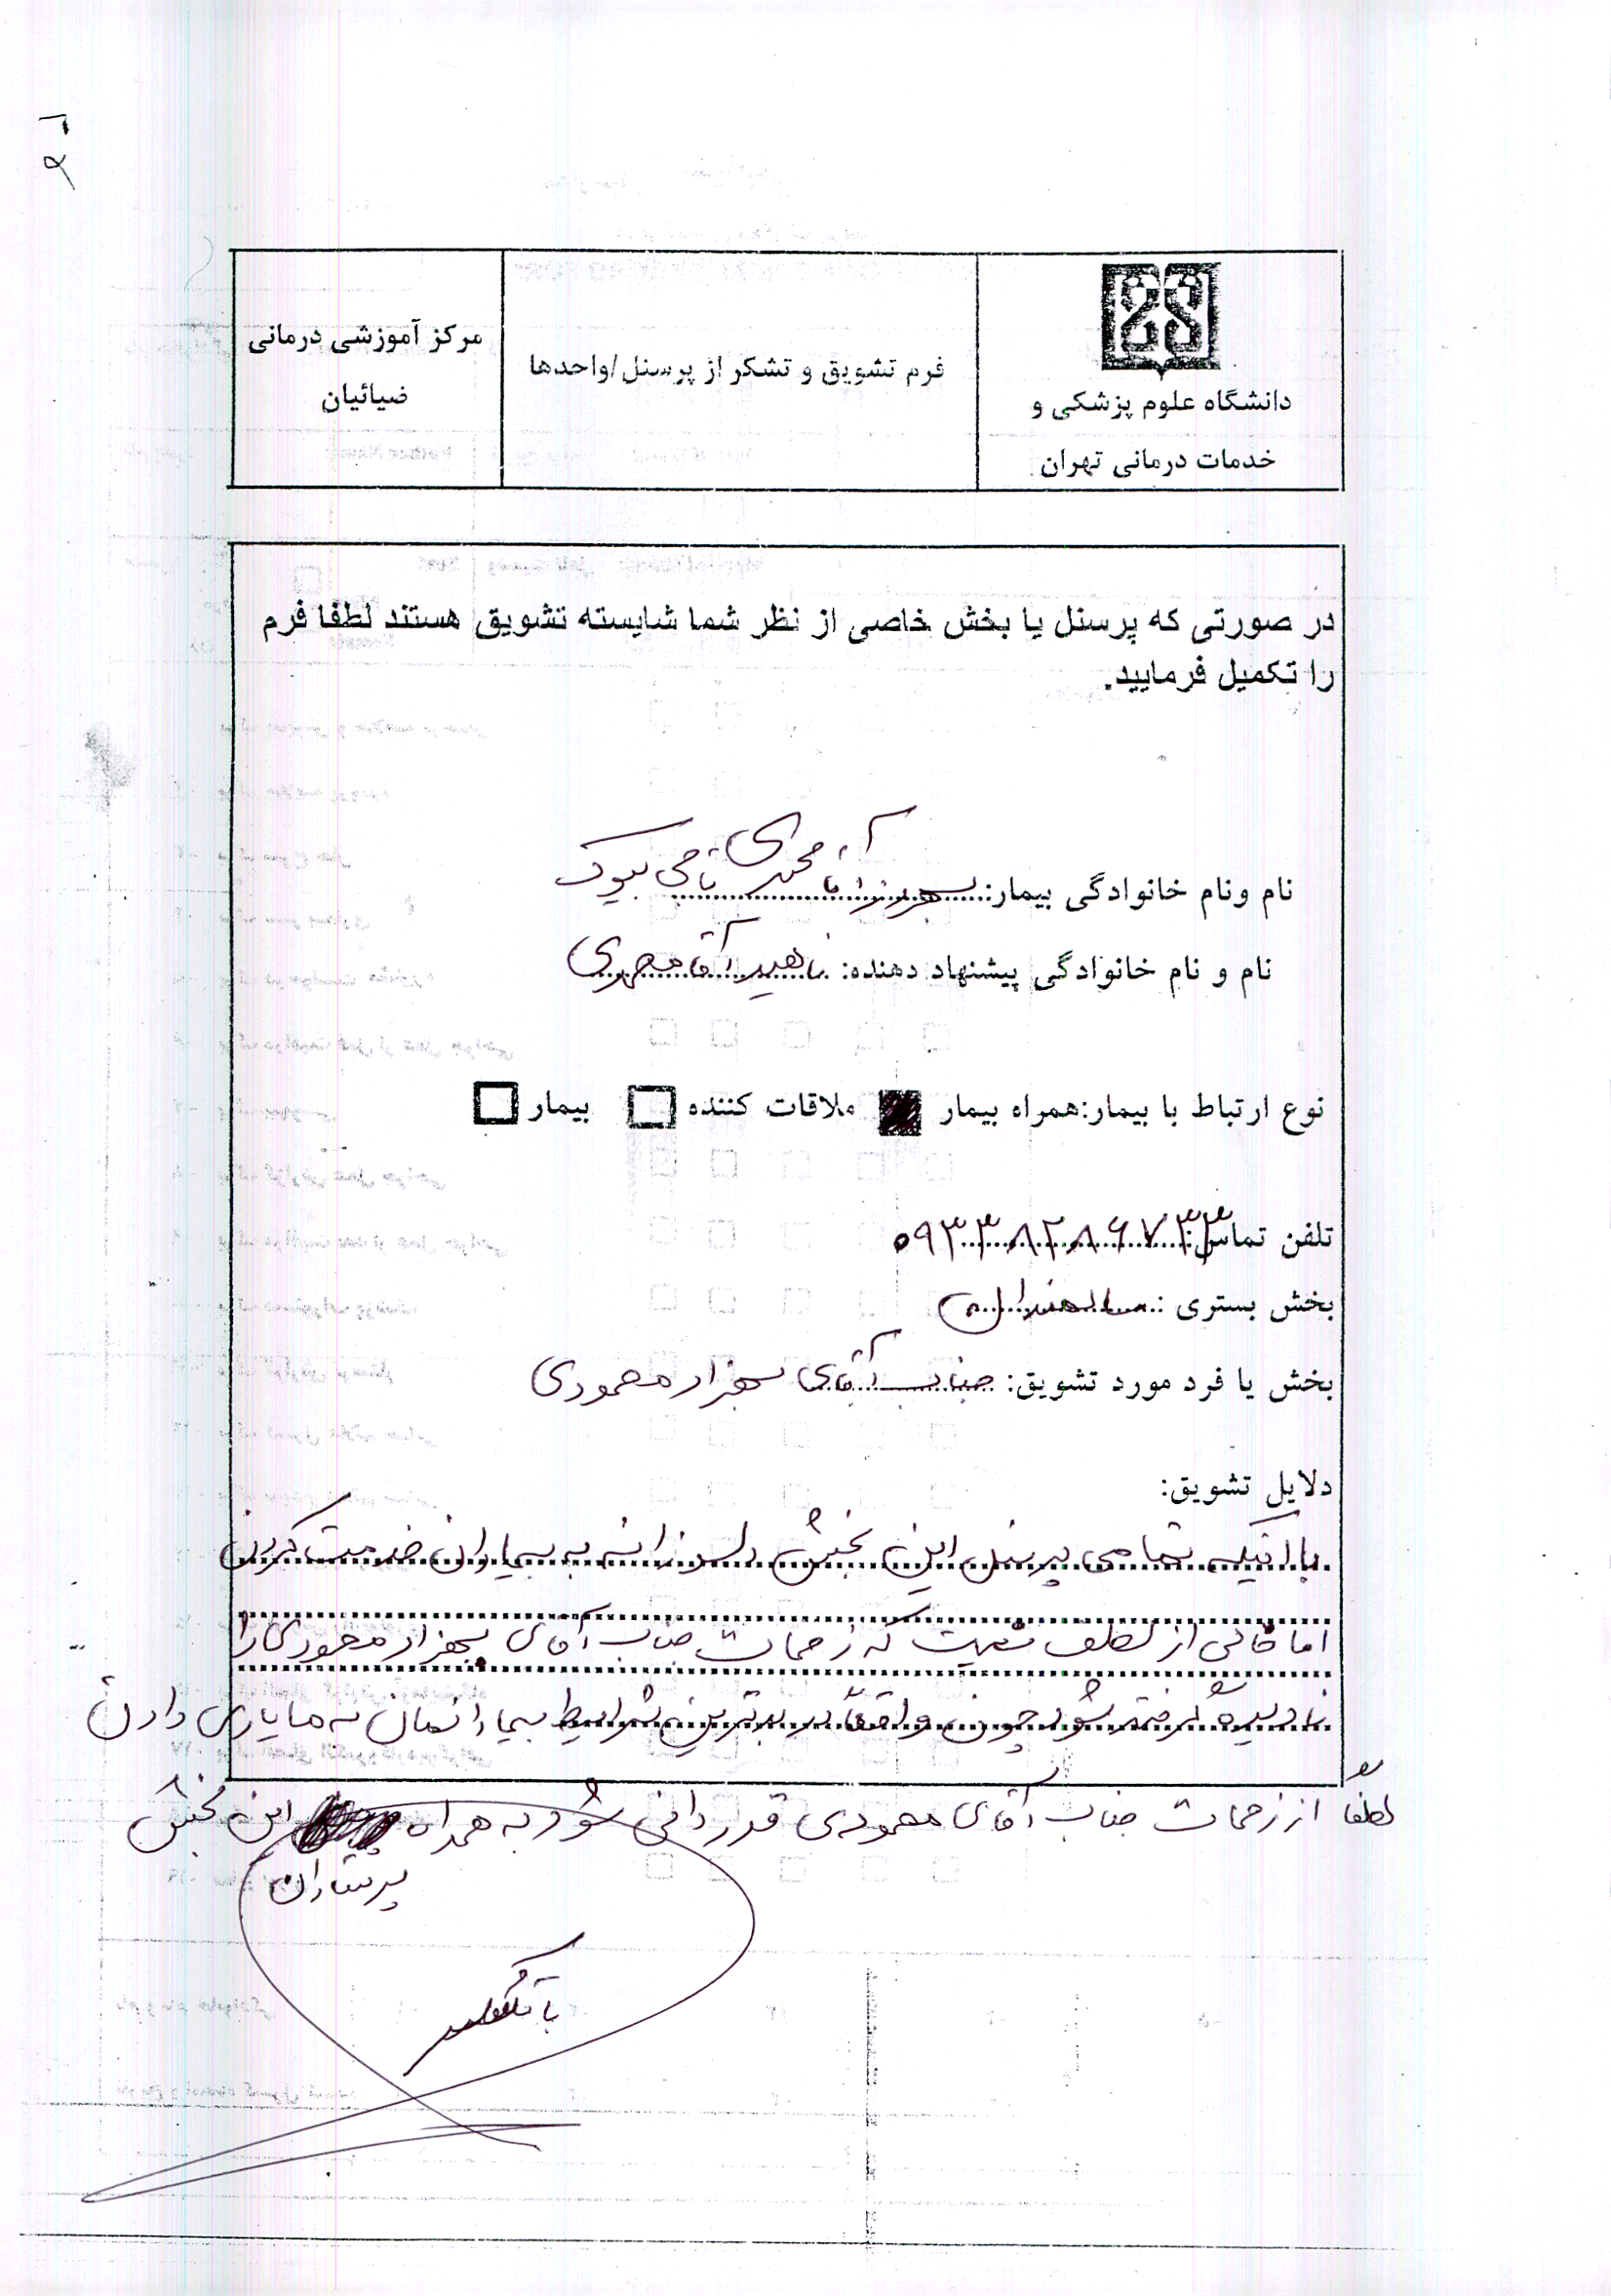 ۹۶
دانشگاه علوم پزشکی و
خدمات درمانی تهران
فرم تشویق و تشکر از پرسنل/واحدها
مرکز آموزشی درمانی
ضیائیان
در صورتی که پرسنل یا بخش خاصی از نظر شما شایسته تشویق هستند لطفا فرم
را تکمیل فرمایید.
نام ونام خانوادگی بیمار: بهروز آقامحمدی
نام و نام خانوادگی پیشنهاد دهنده: ناهید آقامحمدی
نوع ارتباط با بیمار:همراه بیمار ملاقات کننده بیمار
تلفن تماس: ۰۹۳۳۸۲۸۶۷۳۳
بخش بستری : سالمندان
بخش یا فرد مورد تشویق: جناب آقای بهزاد محمودی
دلایل تشویق:
با اینکه تمامی پرسنل این بخش دلسوزانه به بیماران خدمت کردن
اما خالی از لطف نیست که زحمات جناب آقای بهزاد محمودی را
نادیده گرفته شود چون واقعاً در بدترین شرایط بیمارانمان به ما یاری دادن
لطفاً از زحمات جناب آقای محمودی قدردانی شود به همراه این بخش
پرستاران
با تشکر